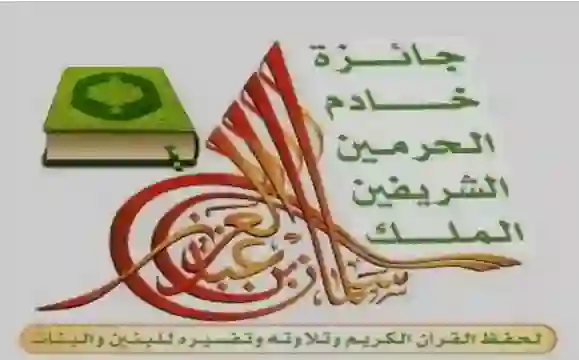 جائزة
خادم
الحرمين
الشريفين
الملك
سلمان بن عبدالعزيز
لحفظ القرآن الكريم وتلاوته وتفسيره للبنين والبنات